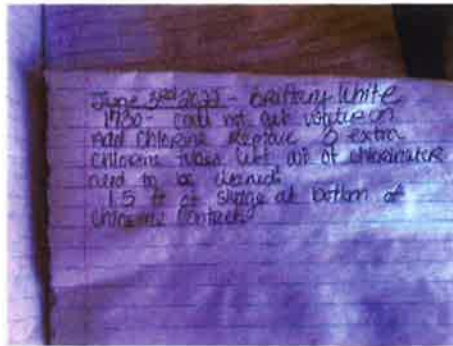 June 3rd 2022 - Brittany White
1930 - could not get water on
Add Chlorine Replace 5 extra
chlorine tubes left out of chlorinator
need to be cleaned
1.5 ft of sludge at bottom of
chlorine contact